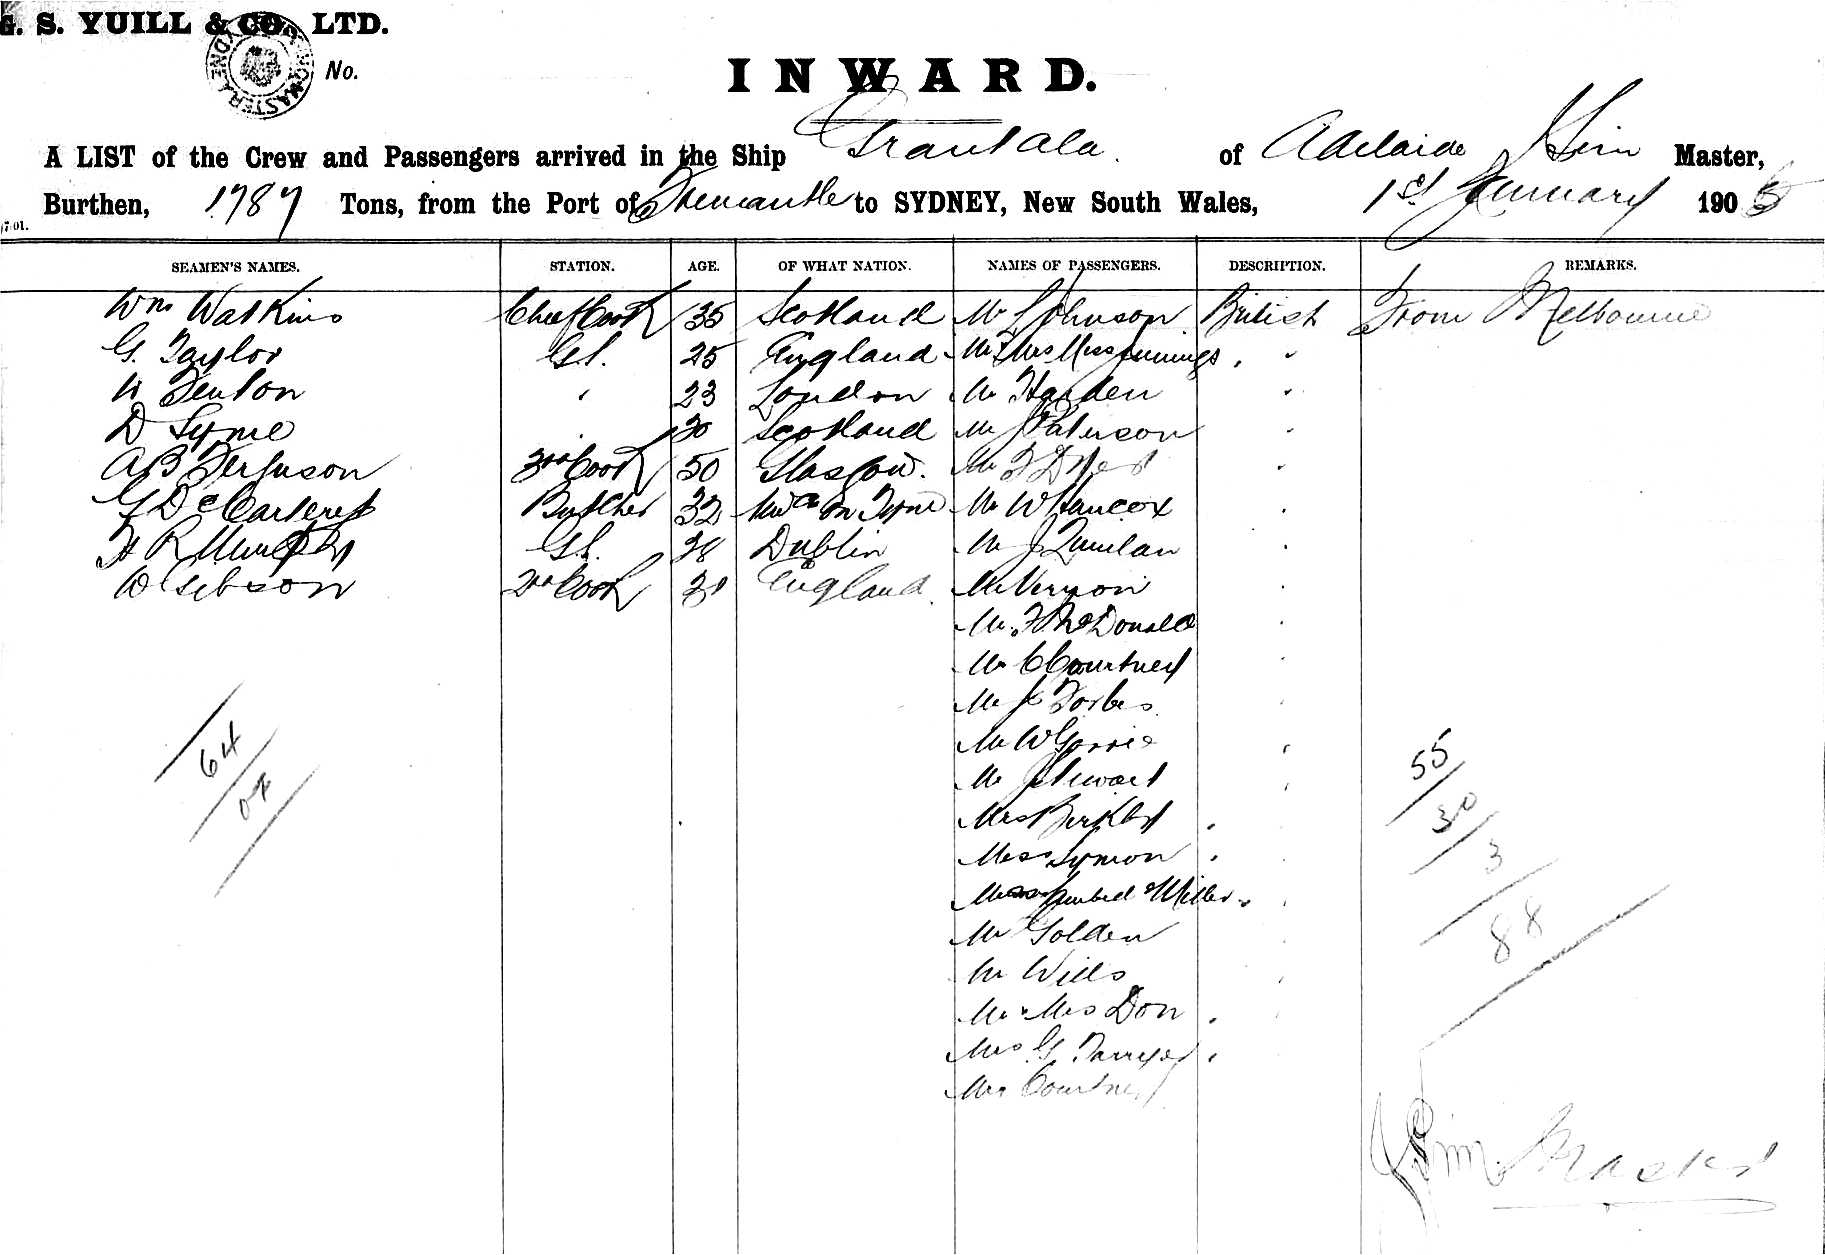 G. S. YUILL & CO. LTD.
No.
INWARD.
A LIST of the Crew and Passengers arrived in the Ship Grantala of Adelaide Sim Master,
Burthen, 1787 Tons, from the Port of Fremantle to SYDNEY, New South Wales, 1st January 1905
SEAMEN'S NAMES. STATION. AGE. OF WHAT NATION. NAMES OF PASSENGERS. DESCRIPTION. REMARKS.
Wm Watkins Chief Cook 35 Scotland Mr Johnson British From Melbourne
G. Taylor G.S. 25 England Mr & Mrs Miss Jennings "
W Fenton " 23 London Mr Harden "
D Syme 30 Scotland Mr J Paterson "
A B Ferguson 3rd Cook 50 Glasgow. Mr F "
G De Carteret Butcher 32 on Tyne Mr W Hancox "
H R Murphy G.S. 28 Dublin Mr J Quinlan "
W Gibson 2nd Cook England. Mr Vernon "
Mr F McDonald "
Mr C Courtney "
Mr J Forbes
Mr W Gorrie "
Mr J Stewart "
Mrs Birkby
Miss Symon
Miller
Mr Golden
Mr Wills
Mr & Mrs Don
Mrs G
Mrs Courtney
64
55
30
3
88
Sim Master